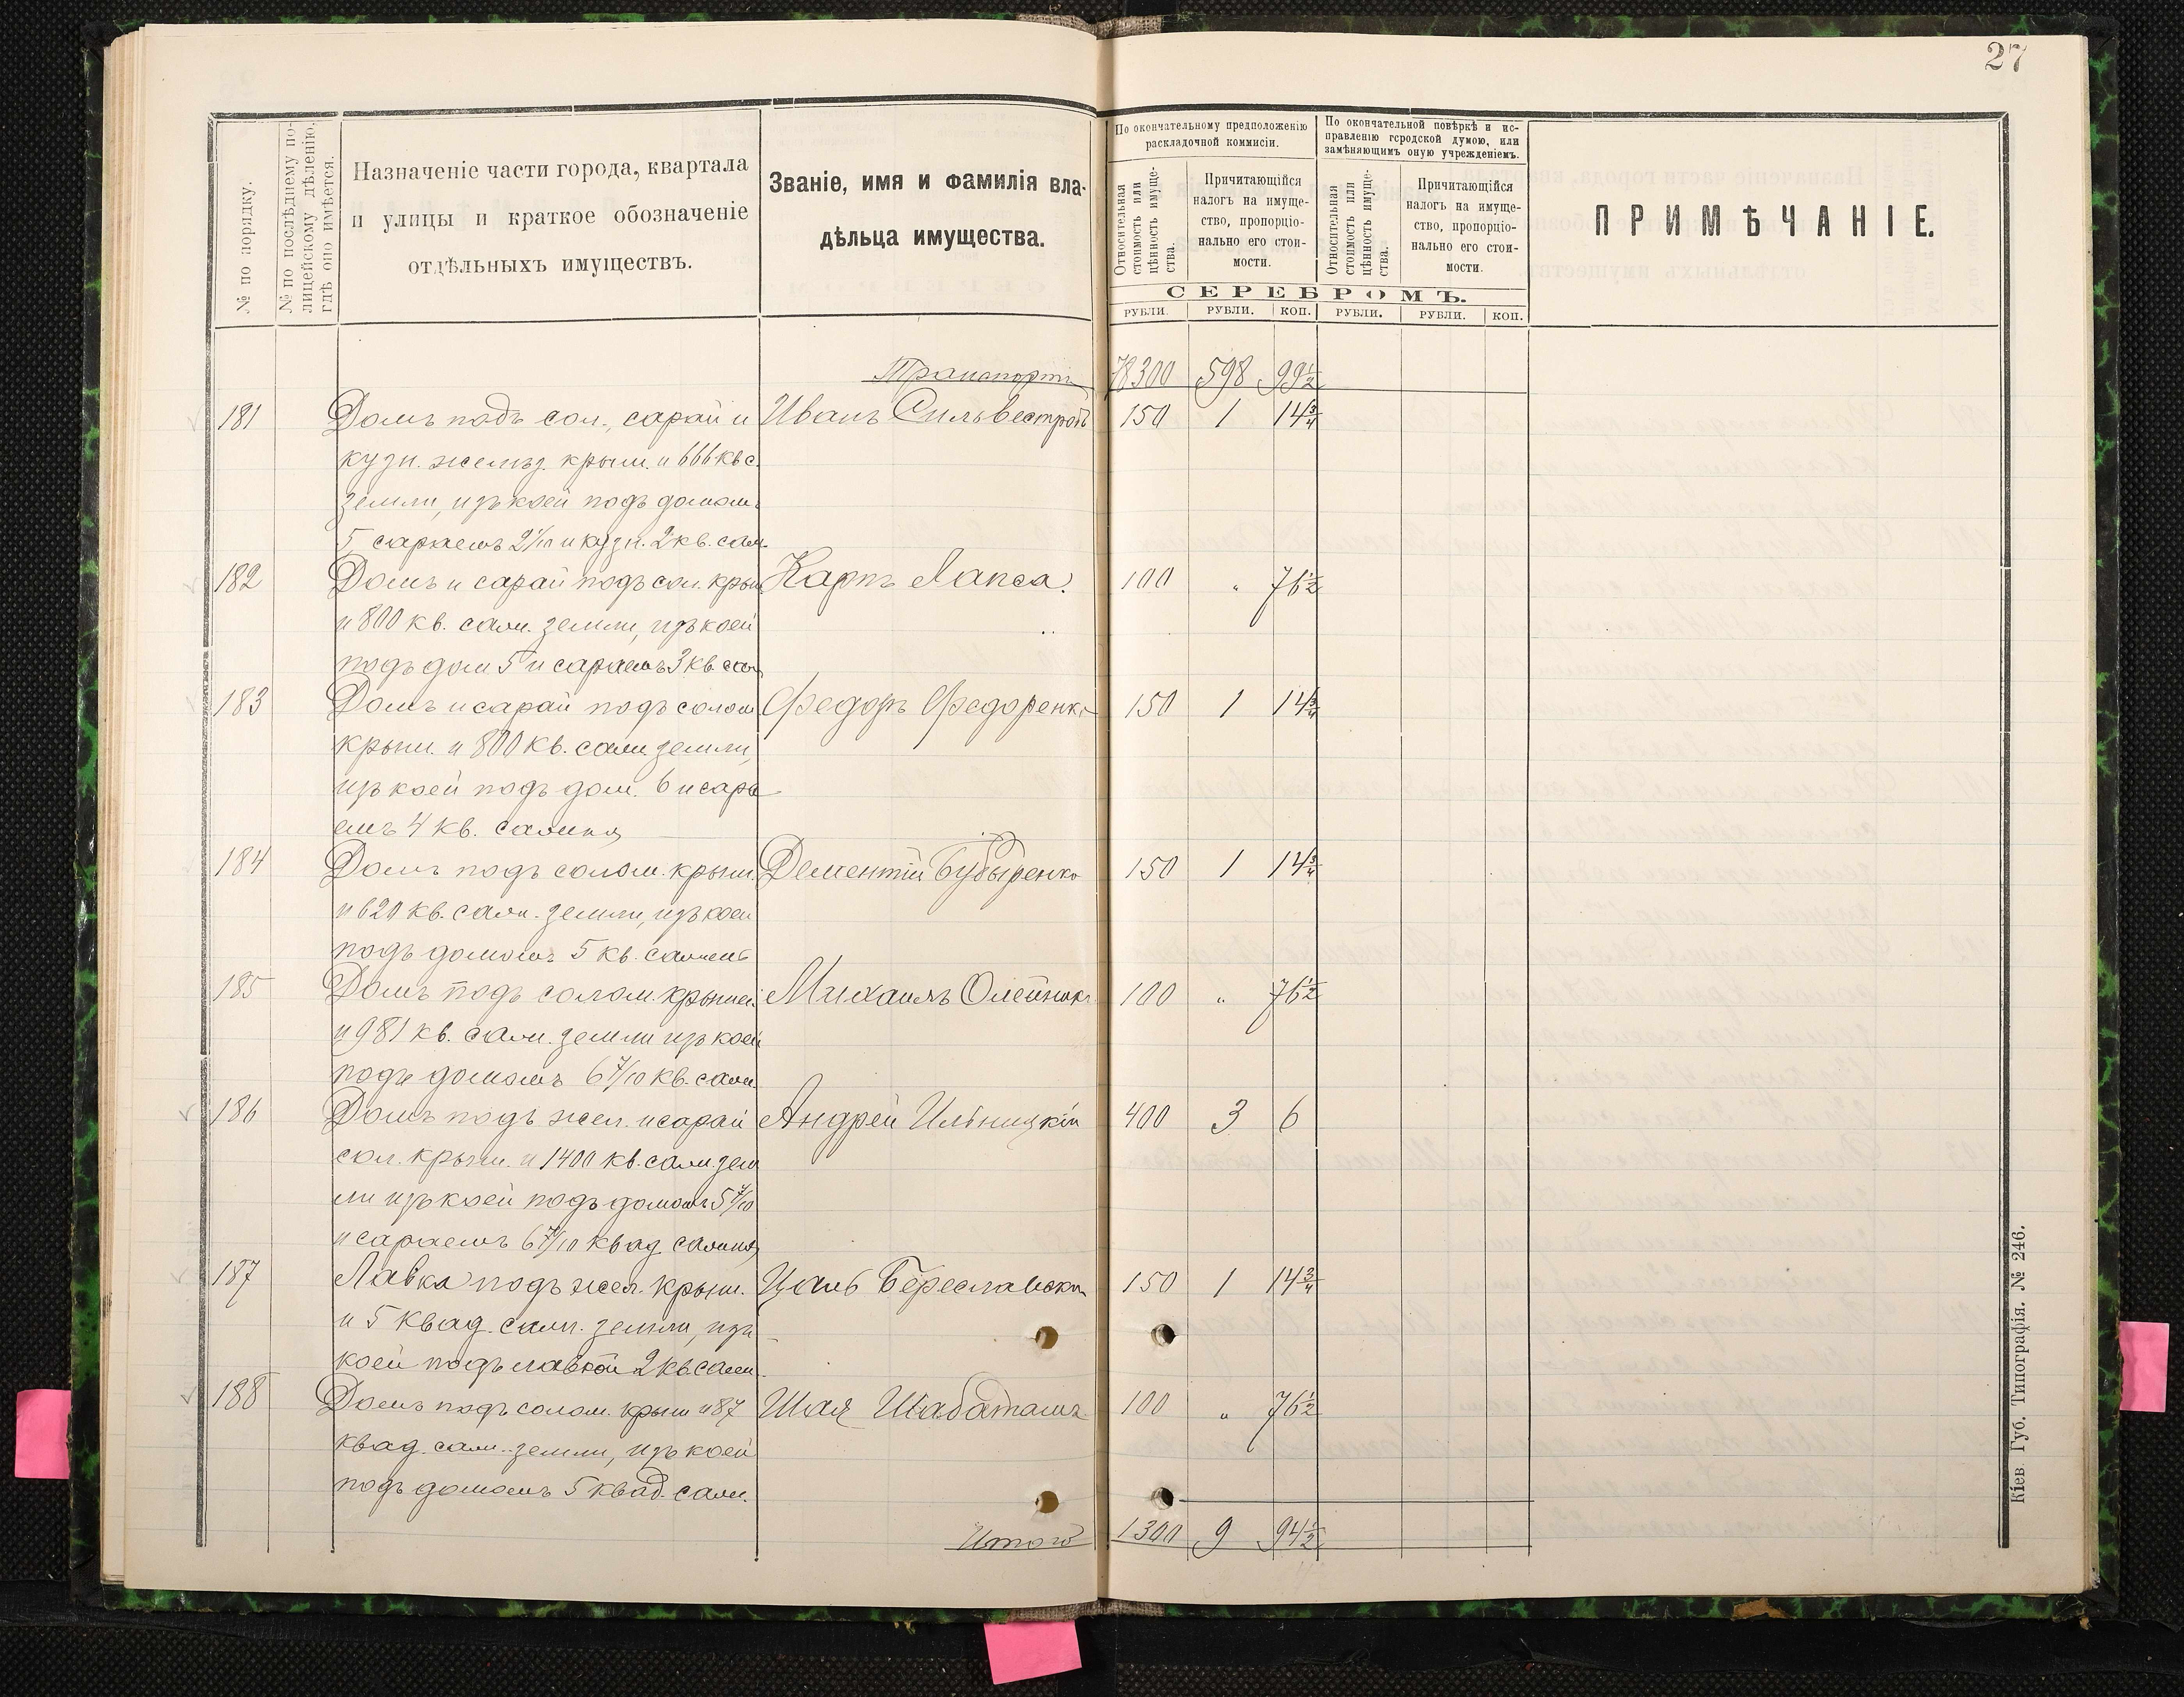 27
№ по порядку.
№ по послѣднему по-
лицейскому дѣленію,
гдѣ оно имѣется.
Назначеніе части города, квартала
и улицы и краткое обозначеніе
отдѣльныхъ имуществъ.
Званіе, имя и фамилія вла-
дѣльца имущества.
По окончательному предположенію
раскладочной коммисіи.
По окончательной повѣркѣ и ис-
правленію городской думою, или
замѣняющимъ оную учрежденіемъ.
Относительная
стоимость или
цѣнность имуще-
ства.
Причитающійся
налогъ на имуще-
ство, пропорціо-
нально его стои-
мости.
Относительная
стоимость или
цѣнность имуще-
ства.
Причитающійся
налогъ на имуще-
ство, пропорціо-
нально его стои-
мости.
ПРИМѢЧАНІЕ.
СЕРЕБРОМЪ.
РУБЛИ. РУБЛИ. КОП. РУБЛИ. РУБЛИ. КОП.
Транспортъ 78300 598 99½
181 Домъ подъ сол., сарай и Иванъ Сильвестровъ 150 1 14¾
кузн. желѣз. крыш. и 666 кв с.
земли, изъ коей подъ домом.
5 сараемъ 2 1/10 и кузн. 2 кв. саж.
182 Домъ и сарай подъ сол. крыш. Карпъ Лапса 100 " 76½
и 800 кв. саж. земли, изъ коей
подъ дом 5 и сараемъ 3 кв саж
183 Домъ и сарай подъ солом Федоръ Федоренко 150 1 14¾
крыш. и 800 кв. саж. земли,
изъ коей подъ дом. 6 и сара
емъ 4 кв. сажня
184 Домъ подъ солом. крыш. Дементій Бубыренко 150 1 14¾
и 620 кв. саж. земли, изъ коей
подъ домомъ 5 кв. сажень
185 Домъ подъ солом. крышей Михаилъ Олейникъ 100 " 76½
и 981 кв. саж. земли изъ коей
подъ домомъ 6 7/10 кв. саж
186 Домъ подъ жел. и сарай Андрей Ильницкій 400 3 6
сол. крыш. и 1400 кв. саж. зем
ли изъ коей подъ домомъ 5 7/10
и сараемъ 6 7/10 квад сажня
187 Лавка подъ жел. крыш. 150 1 14¾
и 5 квад. саж. земли, изъ
коей подъ лавкой 2 кв. саж.
188 Домъ подъ солом. крыш и 87 Шая Шабаташъ 100 " 76½
квад. саж. земли, изъ коей
подъ домомъ 5 квад. саж.
Итого 1300 9 94½
Кіев. Губ. Типографія. № 246.